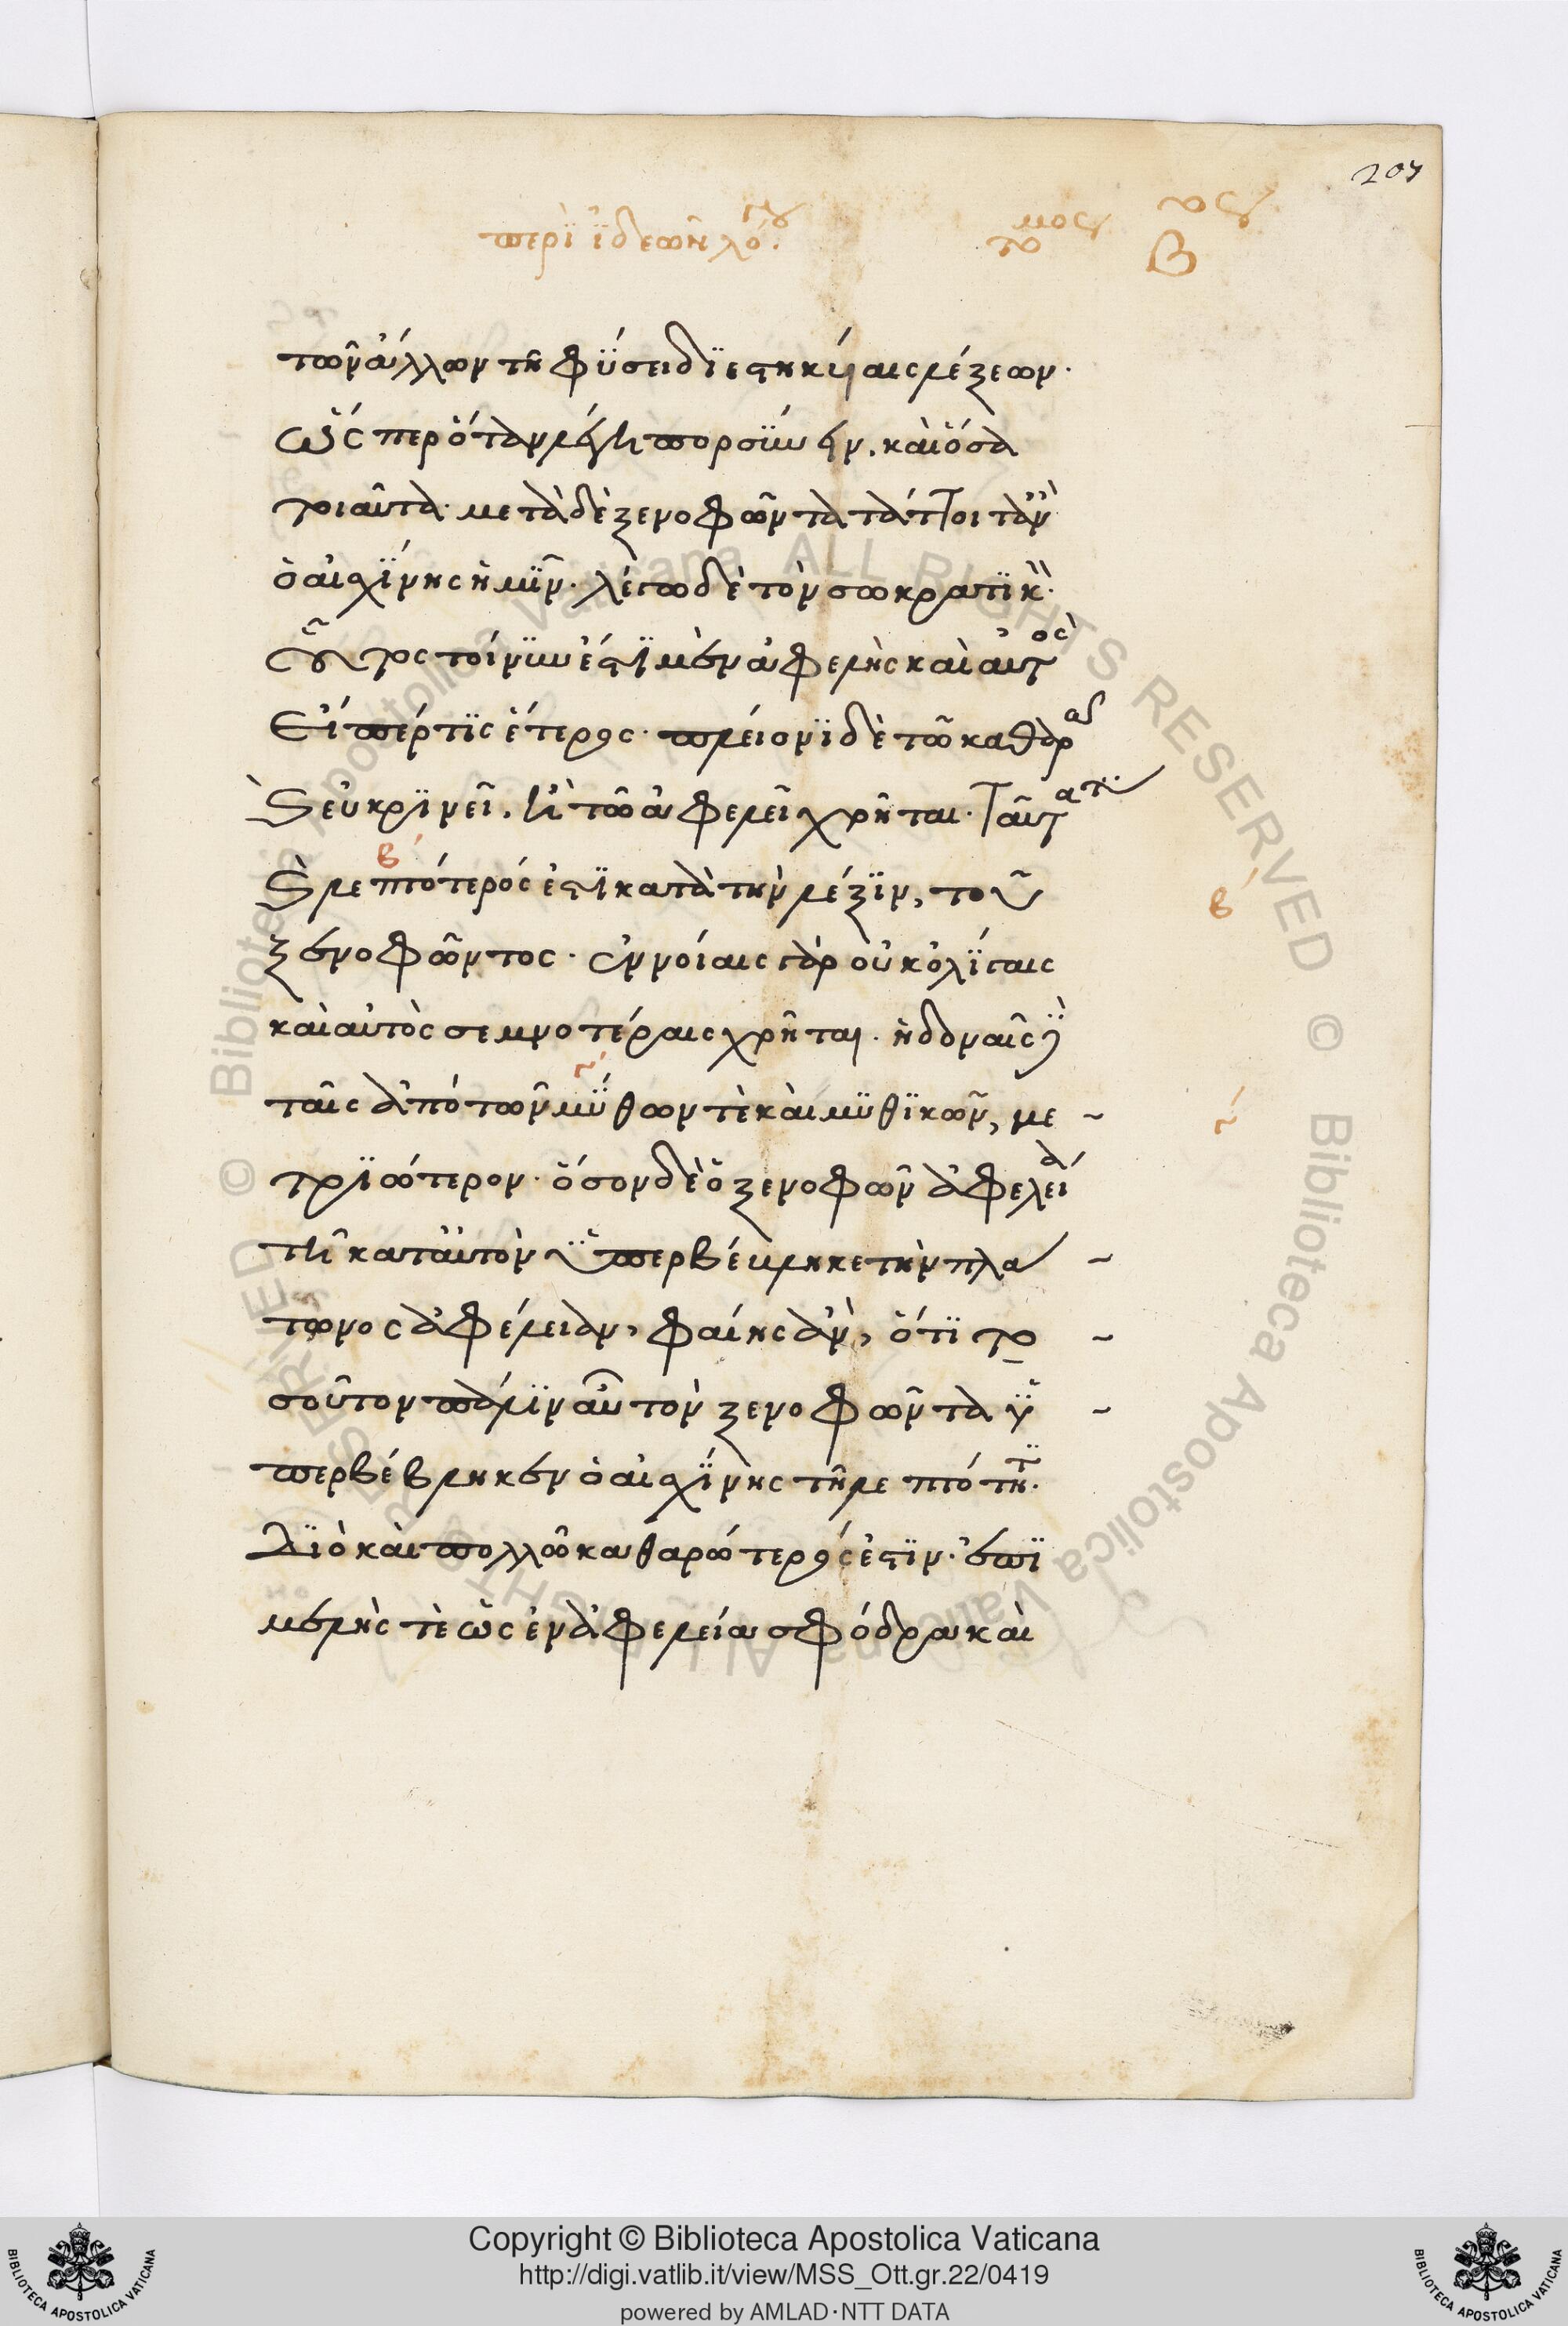 207
περὶ ἰδεῶν λόγου τόμος β
τῶν ἄλλων τῇ φύσει διεστηκυίαις λέξεων.
ὥσπερ ὅταν λέγῃ πορσύνειν. καὶ ὅσα
τοιαῦτα. μετὰ δὲ ξενοφῶντα τάττοιτ' ἂν
ὁ αἰσχίνης ἡμῖν. λέγω δὲ τὸν σωκρατικόν.
οὗτος τοίνυν ἐστὶ μὲν ἀφελὴς καὶ αὐτὸς
εἴπερ τις ἕτερος. πλείονι δὲ τῷ καθαρῷ
καὶ εὐκρινεῖ, ἢ τῷ ἀφελεῖ χρῆται. ταῦτά τοι
β
καὶ λεπτότερός ἐστι κατὰ τὴν λέξιν, τοῦ
β
ξενοφῶντος. ἐννοίαις γὰρ οὐκ ὀλίγαις
καὶ αὐτὸς σεμνοτέραις χρῆται. ἡδοναῖς
ταῖς ἀπὸ τῶν μύθων τὲ καὶ μυθικῶν, με
τριώτερον. ὅσον δὲ ὁ ξενοφῶν ἀφελείᾳ
τῇ κατ' αὐτὸν ὑπερβέβληκε τὴν πλα
τωνος ἀφέλειαν, φαίης ἂν, ὅτι το
σοῦτον πάλιν αὖ τὸν ξενοφῶντα ὑ
περβέβληκεν ὁ αἰσχίνης τῇ λεπτότητι.
διὸ καὶ πολλῷ καθαρώτερός ἐστιν. ἐπι
μελής τὲ ὡς ἐν ἀφελείᾳ σφόδρα καὶ
Copyright © Biblioteca Apostolica Vaticana
http://digi.vatlib.it/view/MSS_Ott.gr.22/0419
powered by AMLAD·NTT DATA
BIBLIOTECA APOSTOLICA VATICANA
BIBLIOTECA APOSTOLICA VATICANA
© Biblioteca Apostolica Vaticana ALL RIGHTS RESERVED © Biblioteca Apostolica Vaticana ALL RIGHTS RESERVED